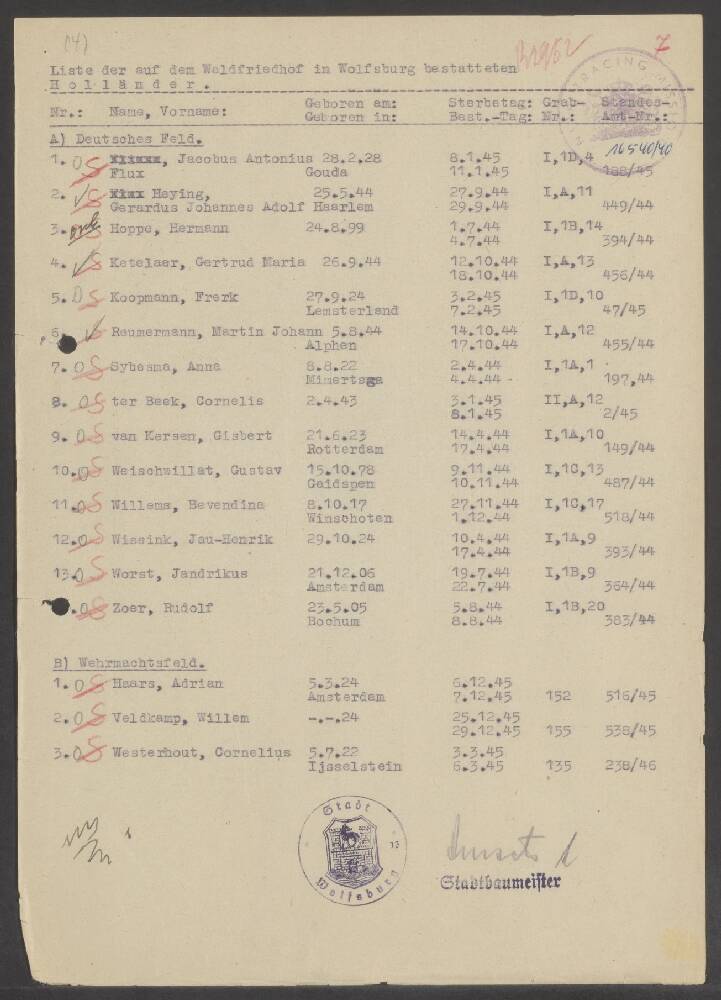 (4)
B2952
7
TRACING MISS
Liste der auf dem Waldfriedhof in Wolfsburg bestatteten
Holländer.
Geboren am: Sterbetag: Grab- Standes-
Nr.: Name, Vorname: Geboren in: Best.-Tag: Nr.: Amt-Nr.:
A) Deutsches Feld.
16540/40
1. O S , Jacobus Antonius 28.2.28 8.1.45 I,1D,4
Flux Gouda 11.1.45 188/45
2. S Heying, 25.5.44 27.9.44 I,A,11
Gerardus Johannes Adolf Haarlem 29.9.44 449/44
3. S Hoppe, Hermann 24.8.99 1.7.44 I,1B,14
4.7.44 394/44
4. S Ketelaer, Gertrud Maria 26.9.44 12.10.44 I,A,13
18.10.44 456/44
5. O S Koopmann, Frerk 27.9.24 3.2.45 I,1D,10
Lemsterland 7.2.45 47/45
6. Reumermann, Martin Johann 5.8.44 14.10.44 I,A,12
Alphen 17.10.44 455/44
7. O S Sybesma, Anna 8.8.22 2.4.44 I,1A,1
Mimertsga 4.4.44 197,44
8. O S ter Beek, Cornelis 2.4.43 3.1.45 II,A,12
8.1.45 2/45
9. O S van Kersen, Gisbert 21.6.23 14.4.44 I,1A,10
Rotterdam 17.4.44 149/44
10. O S Weischwillat, Gustav 15.10.78 9.11.44 I,1C,13
Gaidspen 10.11.44 487/44
11. O S Willems, Bevendina 8.10.17 27.11.44 I,1C,17
Winschoten 1.12.44 518/44
12. O S Wissink, Jau-Henrik 29.10.24 10.4.44 I,1A,9
17.4.44 393/44
13. O S Worst, Jandrikus 21.12.06 19.7.44 I,1B,9
Amsterdam 22.7.44 364/44
. O S Zoer, Rudolf 23.5.05 5.8.44 I,1B,20
Bochum 8.8.44 383/44
B) Wehrmachtsfeld.
1. O S Haars, Adrian 5.3.24 6.12.45
Amsterdam 7.12.45 152 516/45
2. O S Veldkamp, Willem -.-.24 25.12.45
29.12.45 155 538/45
3. O S Westerhout, Cornelius 5.7.22 3.3.45
Ijsselstein 6.3.45 135 238/46
Stadt
13
Wolfsburg
Stadtbaumeister